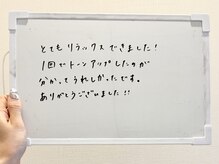 とてもリラックスできました!
1回でトーンアップしたのが
分かってうれしかったです。
ありがとうございました!!